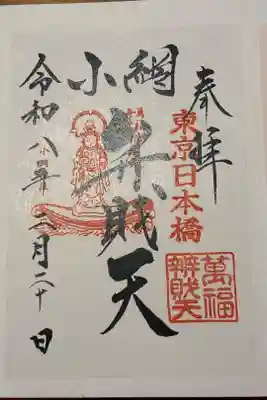 奉拝
東京日本橋
萬福
辨財天
小網
弁財天
令和八年 月二十日